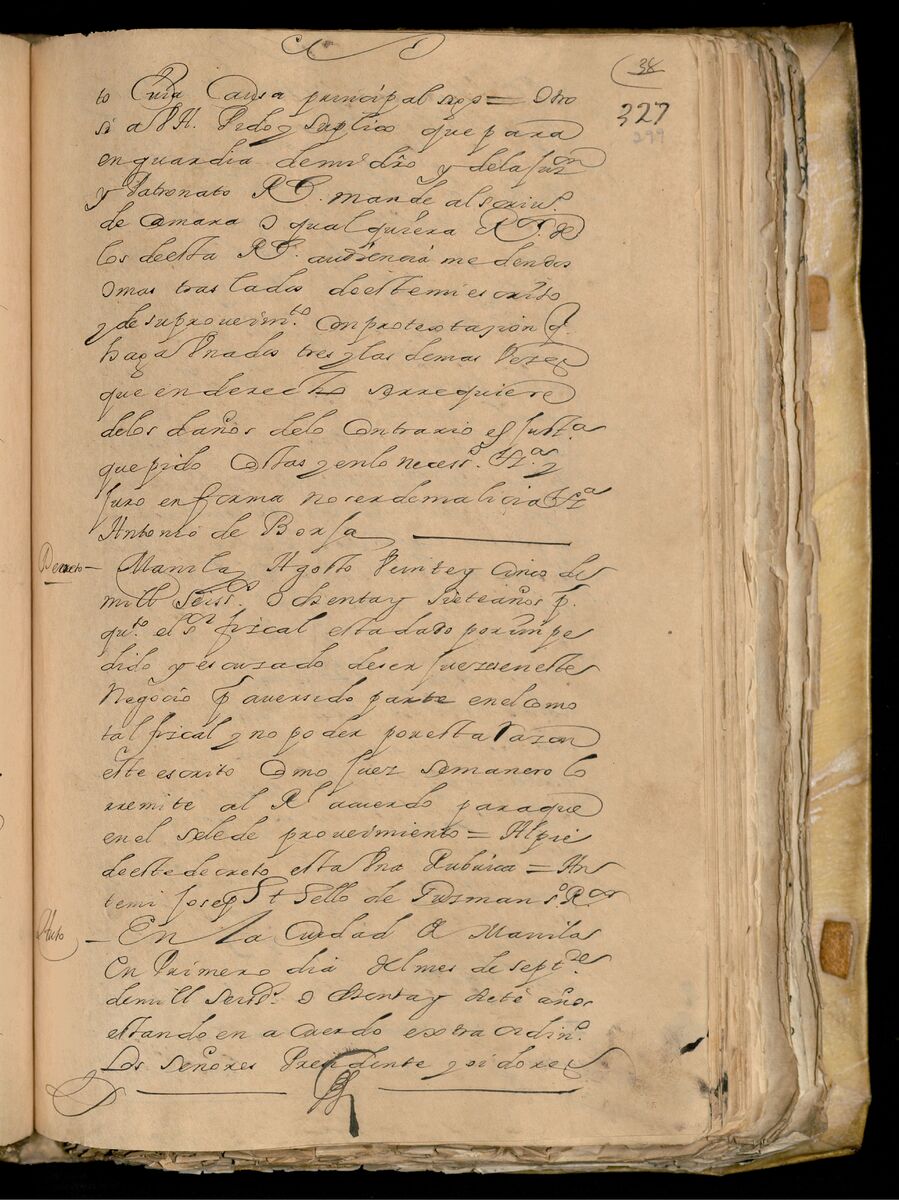 38
327
299
to Cuia Causa principal sigo = Otro
si a V A. Pido y Suplico que para
en guardia de mi dro y de la Juron
y Patronato Rl. mande al scriuo.
de Camara o qual quiera Rr. de
los de esta Rl. audiencia me den dos
o mas traslados de este mi escrito
y de su proueimto. Con protextasion q
haga Vna dos tres y las demas Vezes
que en derecto se rrequiere
de los daños de lo Contrario es Justa.
que pido Costas y en lo necesso. &a. y
Juro en forma no ser de malicia &a
Antonio de Borja
Decreto - Manila y Agosto Veinte y Cinco de
mill Seisso. o chenta y siete años p.
quto. el sor fiscal esta dado por impe
dido y escusado de ser Juez en este
Negocio p auer sido parte en el como
tal fiscal y no poder por esta razon
este escrito Como Juez semanero lo
rremite al Rl acuerdo para que
en el se le de proueimiento = Al pie
de este decreto esta Vna Rubrica = An
temi Joseph St Tello de Guzman so. Ror
Auto - En La Ciudad de Manila
en Primero dia del mes de Septres.
de mill seisso. o chenta y siete años
estando en a cuerdo extra ordino.
Los Señores Presidente y oidores